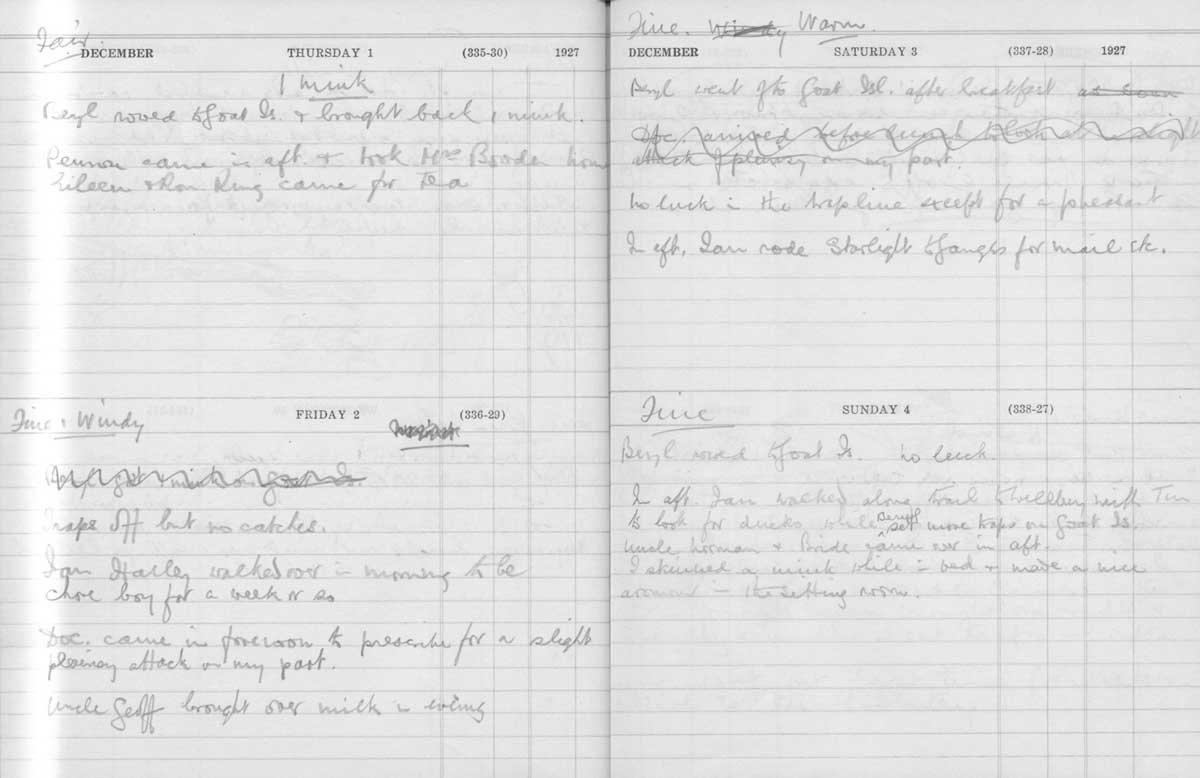 Fair.
DECEMBER THURSDAY 1 (335-30) 1927
1 Mink
Beryl rowed to Goat Is. & brought back 1 mink.
came in aft. & took Mrs home
Eileen & Ron King came for Tea
FRIDAY 2 (336-29)
Fine & Windy
Traps off but no catches.
Ian Harley walked over in morning to be
chore boy for a week or so
Doc. came in forenoon to prescribe for a slight
pleurisy attack on my part.
Uncle Geoff brought over milk in evening
Fine. Windy Warm
DECEMBER SATURDAY 3 (337-28) 1927
Beryl went off to Goat Isl. after breakfast as soon
Doc. arrived before lunch to look at slight
attack of pleurisy on my part.
No luck in the trapline except for a pheasant
In aft. Ian rode Starlight to Ganges for mail etc.
Fine
SUNDAY 4 (338-27)
Beryl rowed to Goat Is. No luck.
In aft. Ian walked along trail to with Tim
to look for ducks while Beryl set more traps on Goat Is.
Uncle Norman & Bride came over in aft.
I skinned a mink while in bed & made a nice
aroma in the sitting room.